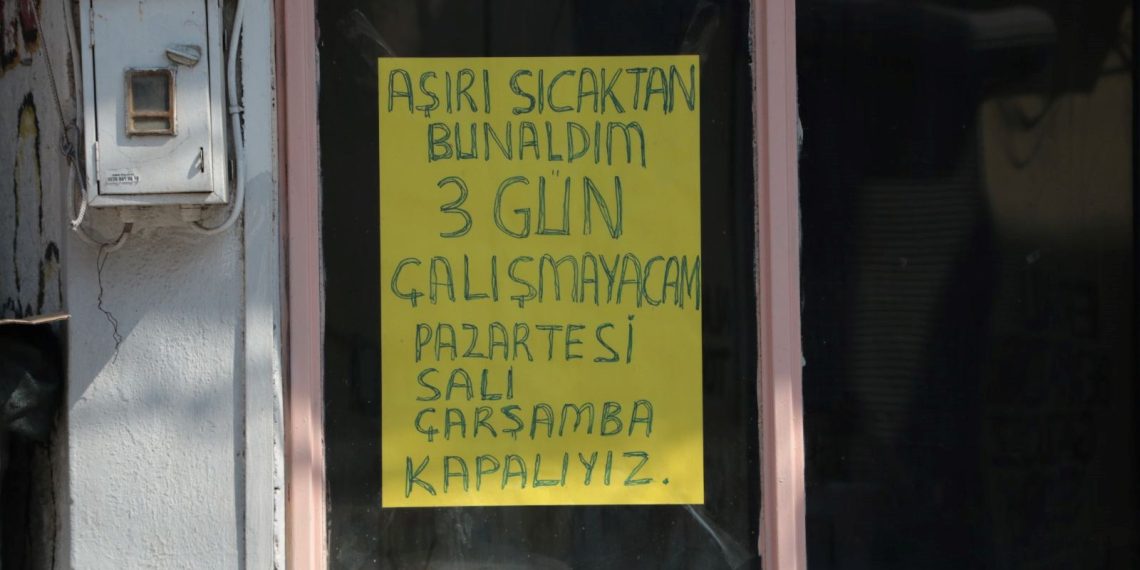 AŞIRI SICAKTAN
BUNALDIM
3 GÜN
ÇALIŞMAYACAM
PAZARTESİ
SALI
ÇARŞAMBA
KAPALIYIZ.